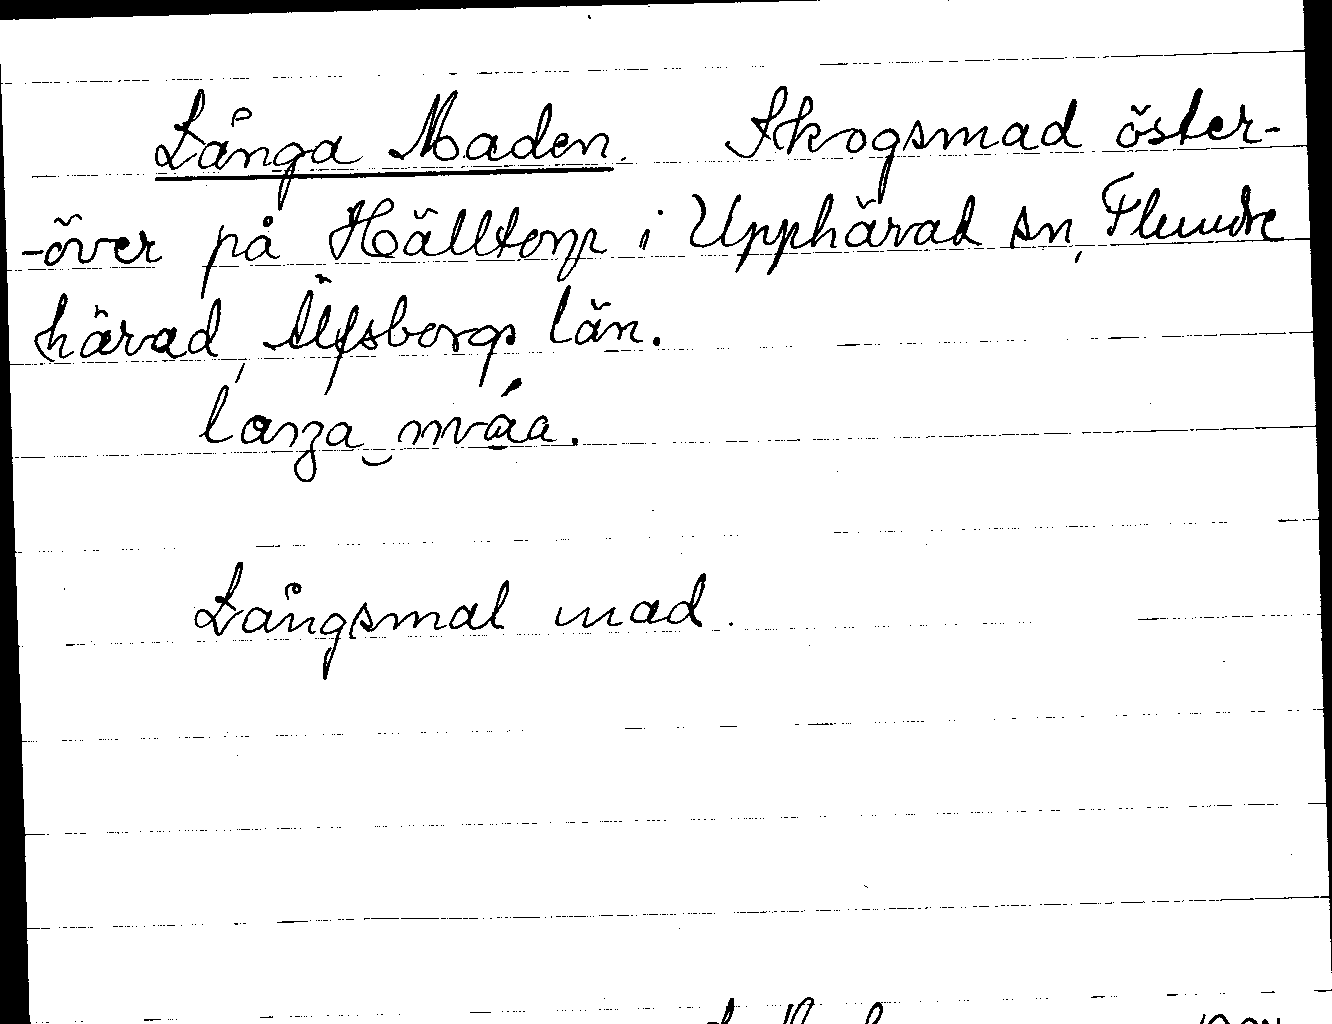 Långa Maden. Skogsmad öster-
-över på Hälltorp i Upphärad sn, Flundre
härad, Älfsborgs län.
Långsmal mad.